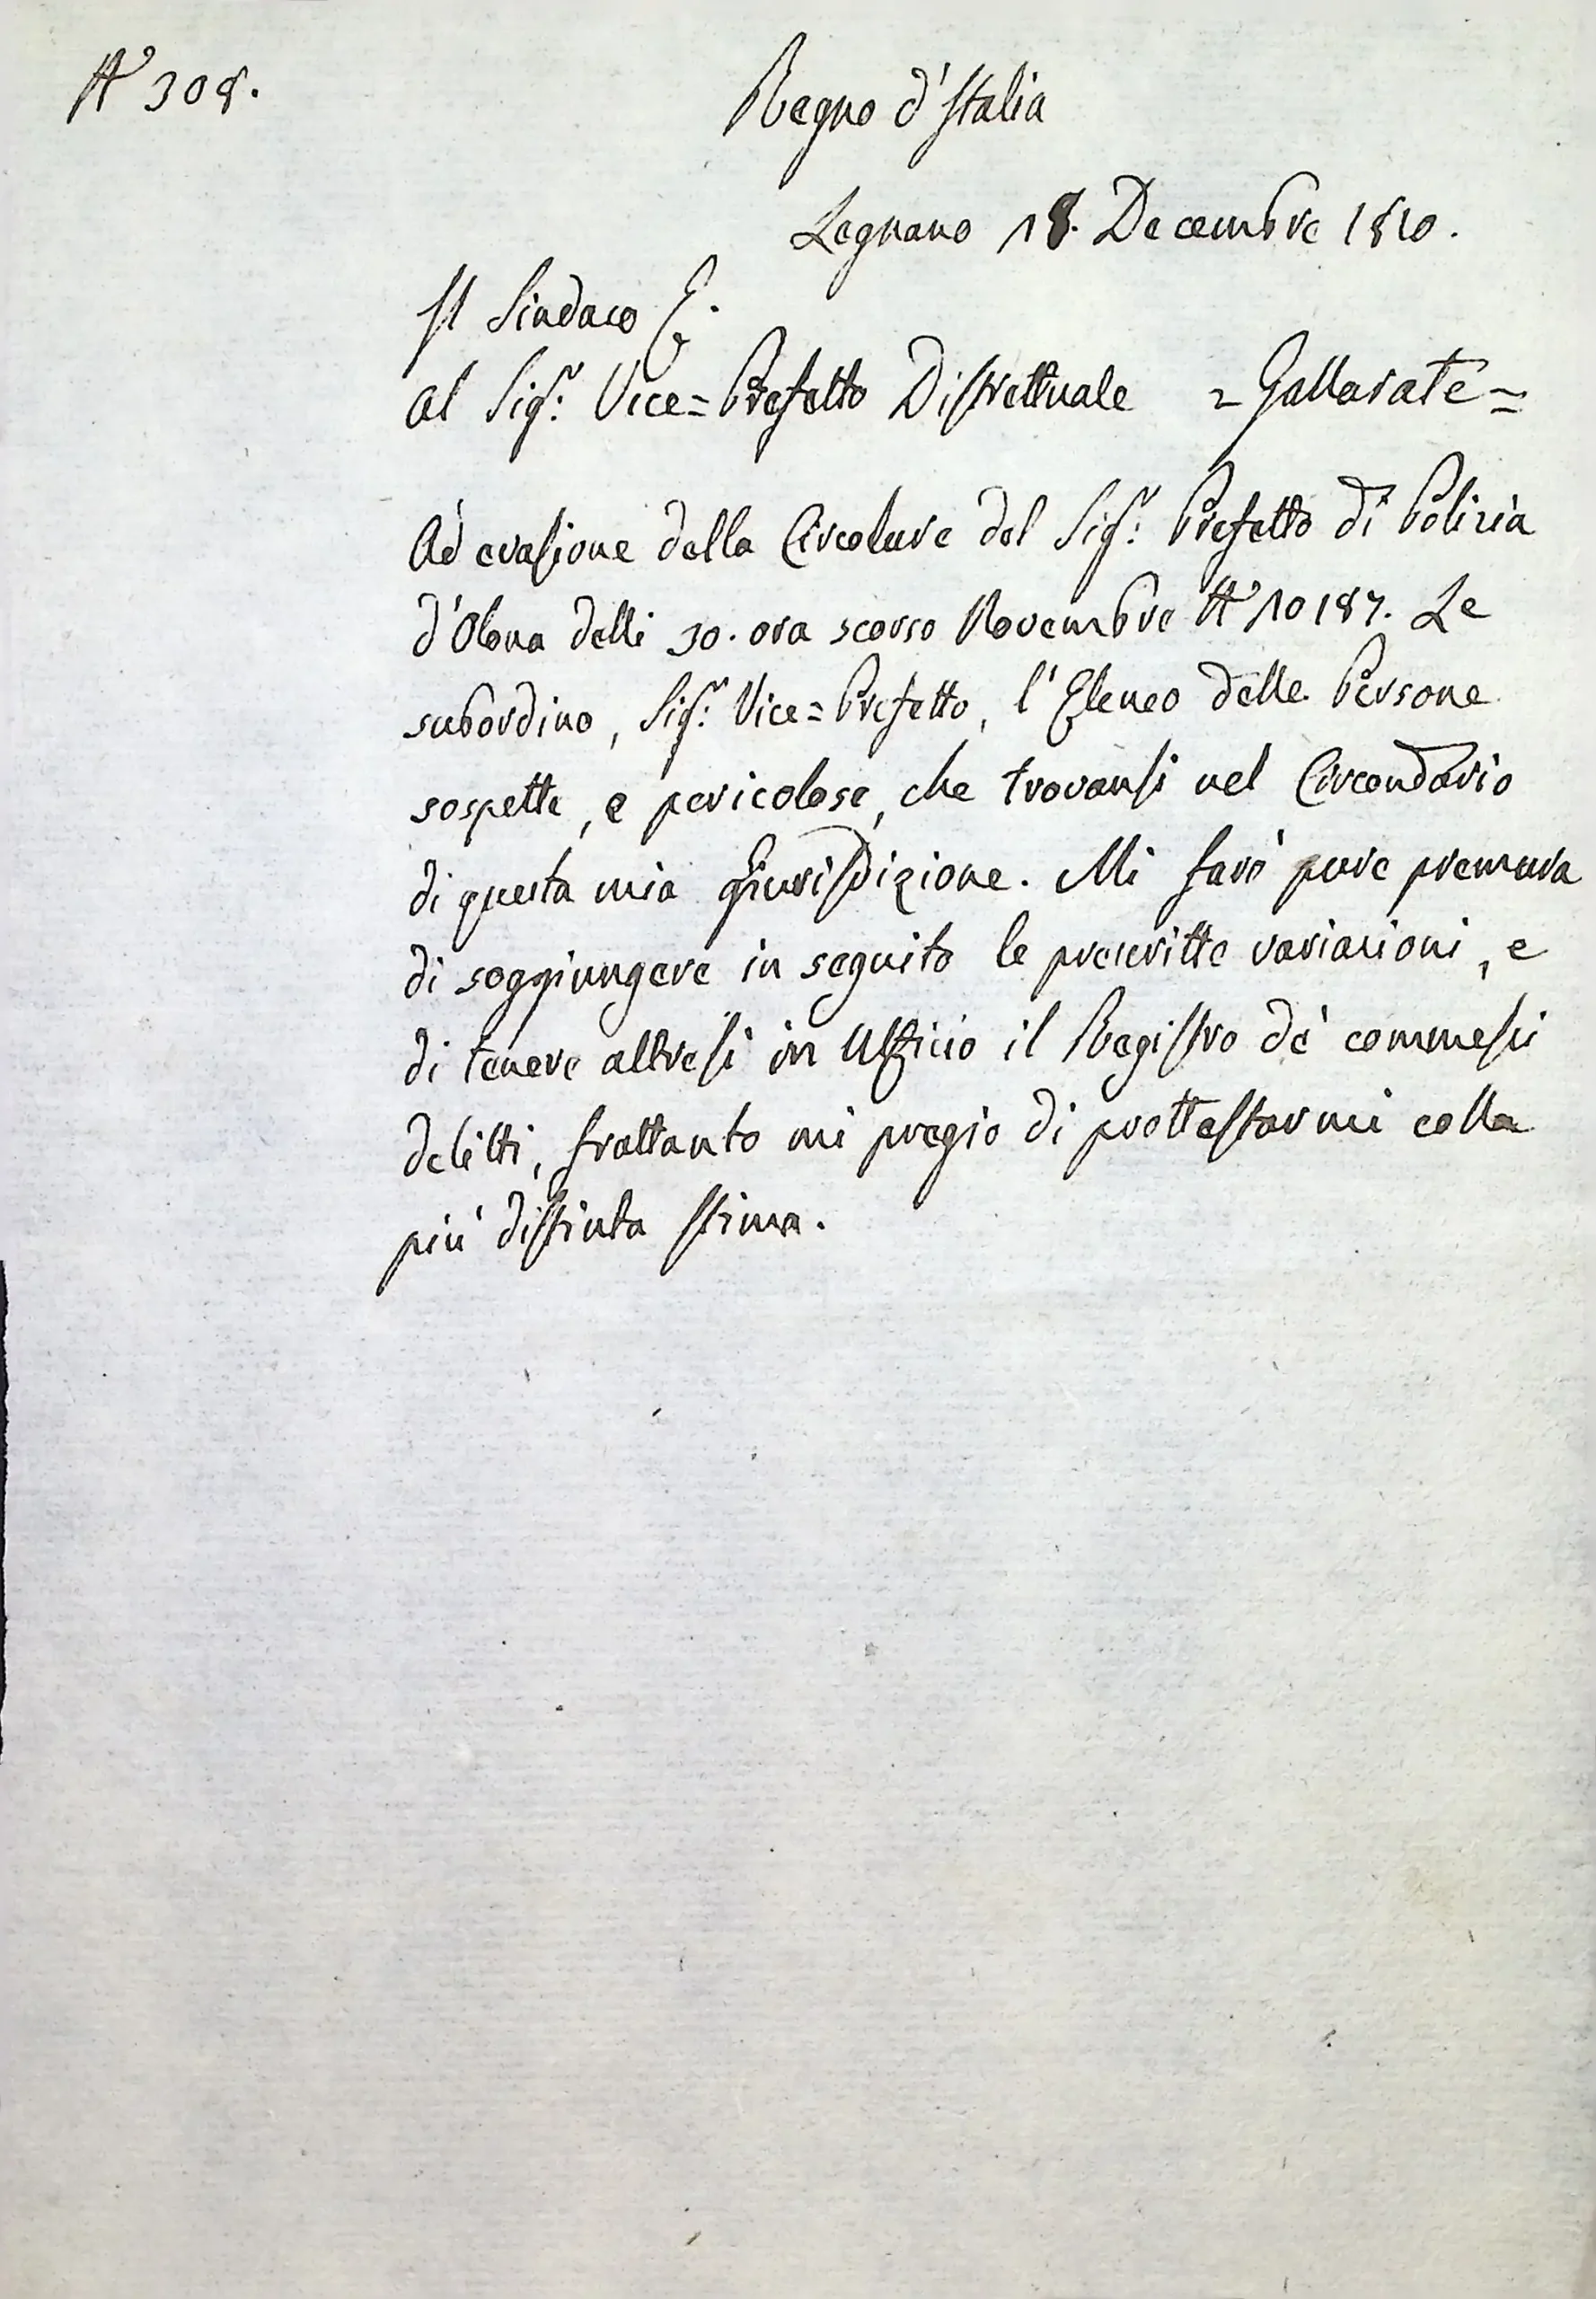 N° 308.
Regno d'Italia
Legnano 18. Decembre 1810.
Il Sindaco
al Sigr: Vice=Prefetto Distrettuale =Gallarate=
Ad evasione della Circolare del Sigr: Prefetto di Polizia
d'Olona delli 30. ora scorso Novembre N° 10187. Le
subordino, Sigr: Vice=Prefetto, l'Elenco delle Persone
sospette, e pericolose, che trovansi nel Circondario
di questa mia Giurisdizione. Mi farò pure premura
di soggiungere in seguito le prescritte variazioni, e
di tenere altresì in Ufficio il Registro de' commessi
delitti, frattanto mi pregio di prottestarmi colla
più distinta stima.